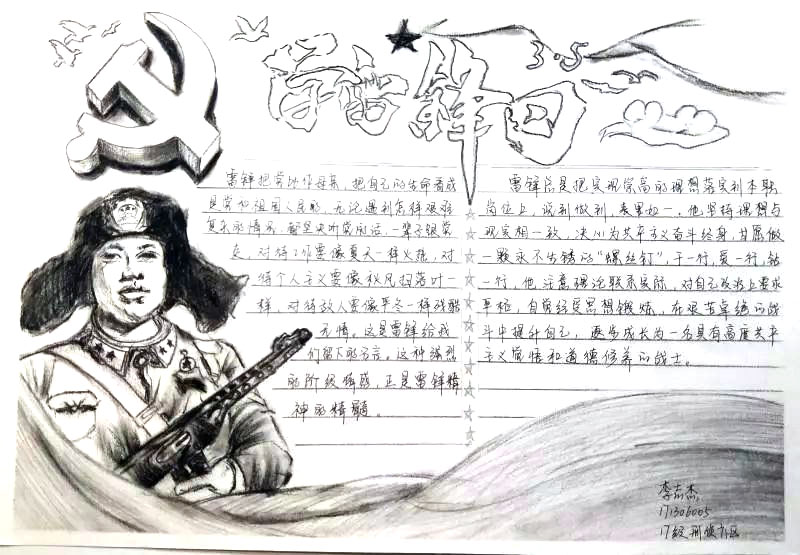 学雷锋日
3.5
雷锋把党比作母亲，把自己的生命看成
是党和祖国人民的，无论遇到怎样艰难
复杂的情况，都坚决听党的话，一辈子跟党
走，对待工作要像夏天一样火热，对
待个人主义要像秋风扫落叶一
样，对待敌人要像严冬一样残酷
无情。这是雷锋给我
们留下的名言。这种强烈
的阶级情感，正是雷锋精
神的精髓。
雷锋总是把实现崇高的理想落实到本职
岗位上，说到做到，表里如一，他坚持理想与
现实相一致，决心为共产主义奋斗终身，甘愿做
一颗永不生锈的“螺丝钉”，干一行，爱一行，钻
一行，他注意理论联系实际，对自己政治上要求
严格，自觉经受思想锻炼，在艰苦卓绝的战
斗中提升自己，逐步成长为一名具有高度共产
主义觉悟和道德修养的战士。
李志杰
171306005
17级刑侦九区